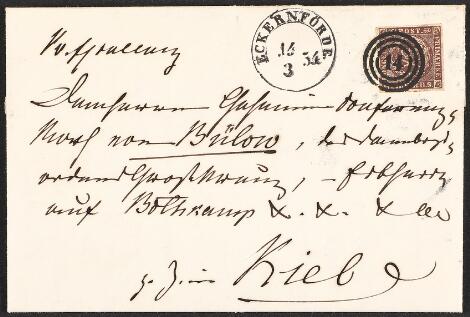 ECKERNFÖRDE
14
3 54
POST
14
Dem Herrn Geheimen Conferenz-
Rath von Bülow, des Dannebrog-
ordens Großkreuz, - Erbherr
auf Bothkamp &. &. &
Kiel